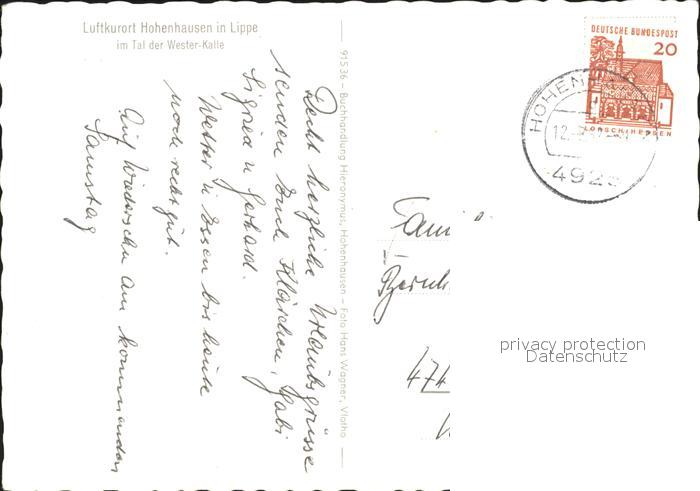 Luftkurort Hohenhausen in Lippe
im Tal der Wester-Kalle
91536 – Buchhandlung Hieronymus, Hohenhausen – Foto Hans Wagner, Vlotho
Recht herzliche Urlaubsgrüsse
senden Euch Klärchen, Gabi
Sigrid u Gerhard.
Wetter u Essen bis heute
noch recht gut.
Auf Wiedersehn am kommenden
Samstag
DEUTSCHE BUNDESPOST
20
LORSCH/HESSEN
HOHENH
12.
492
Fami
Bernh
474
privacy protection
Datenschutz